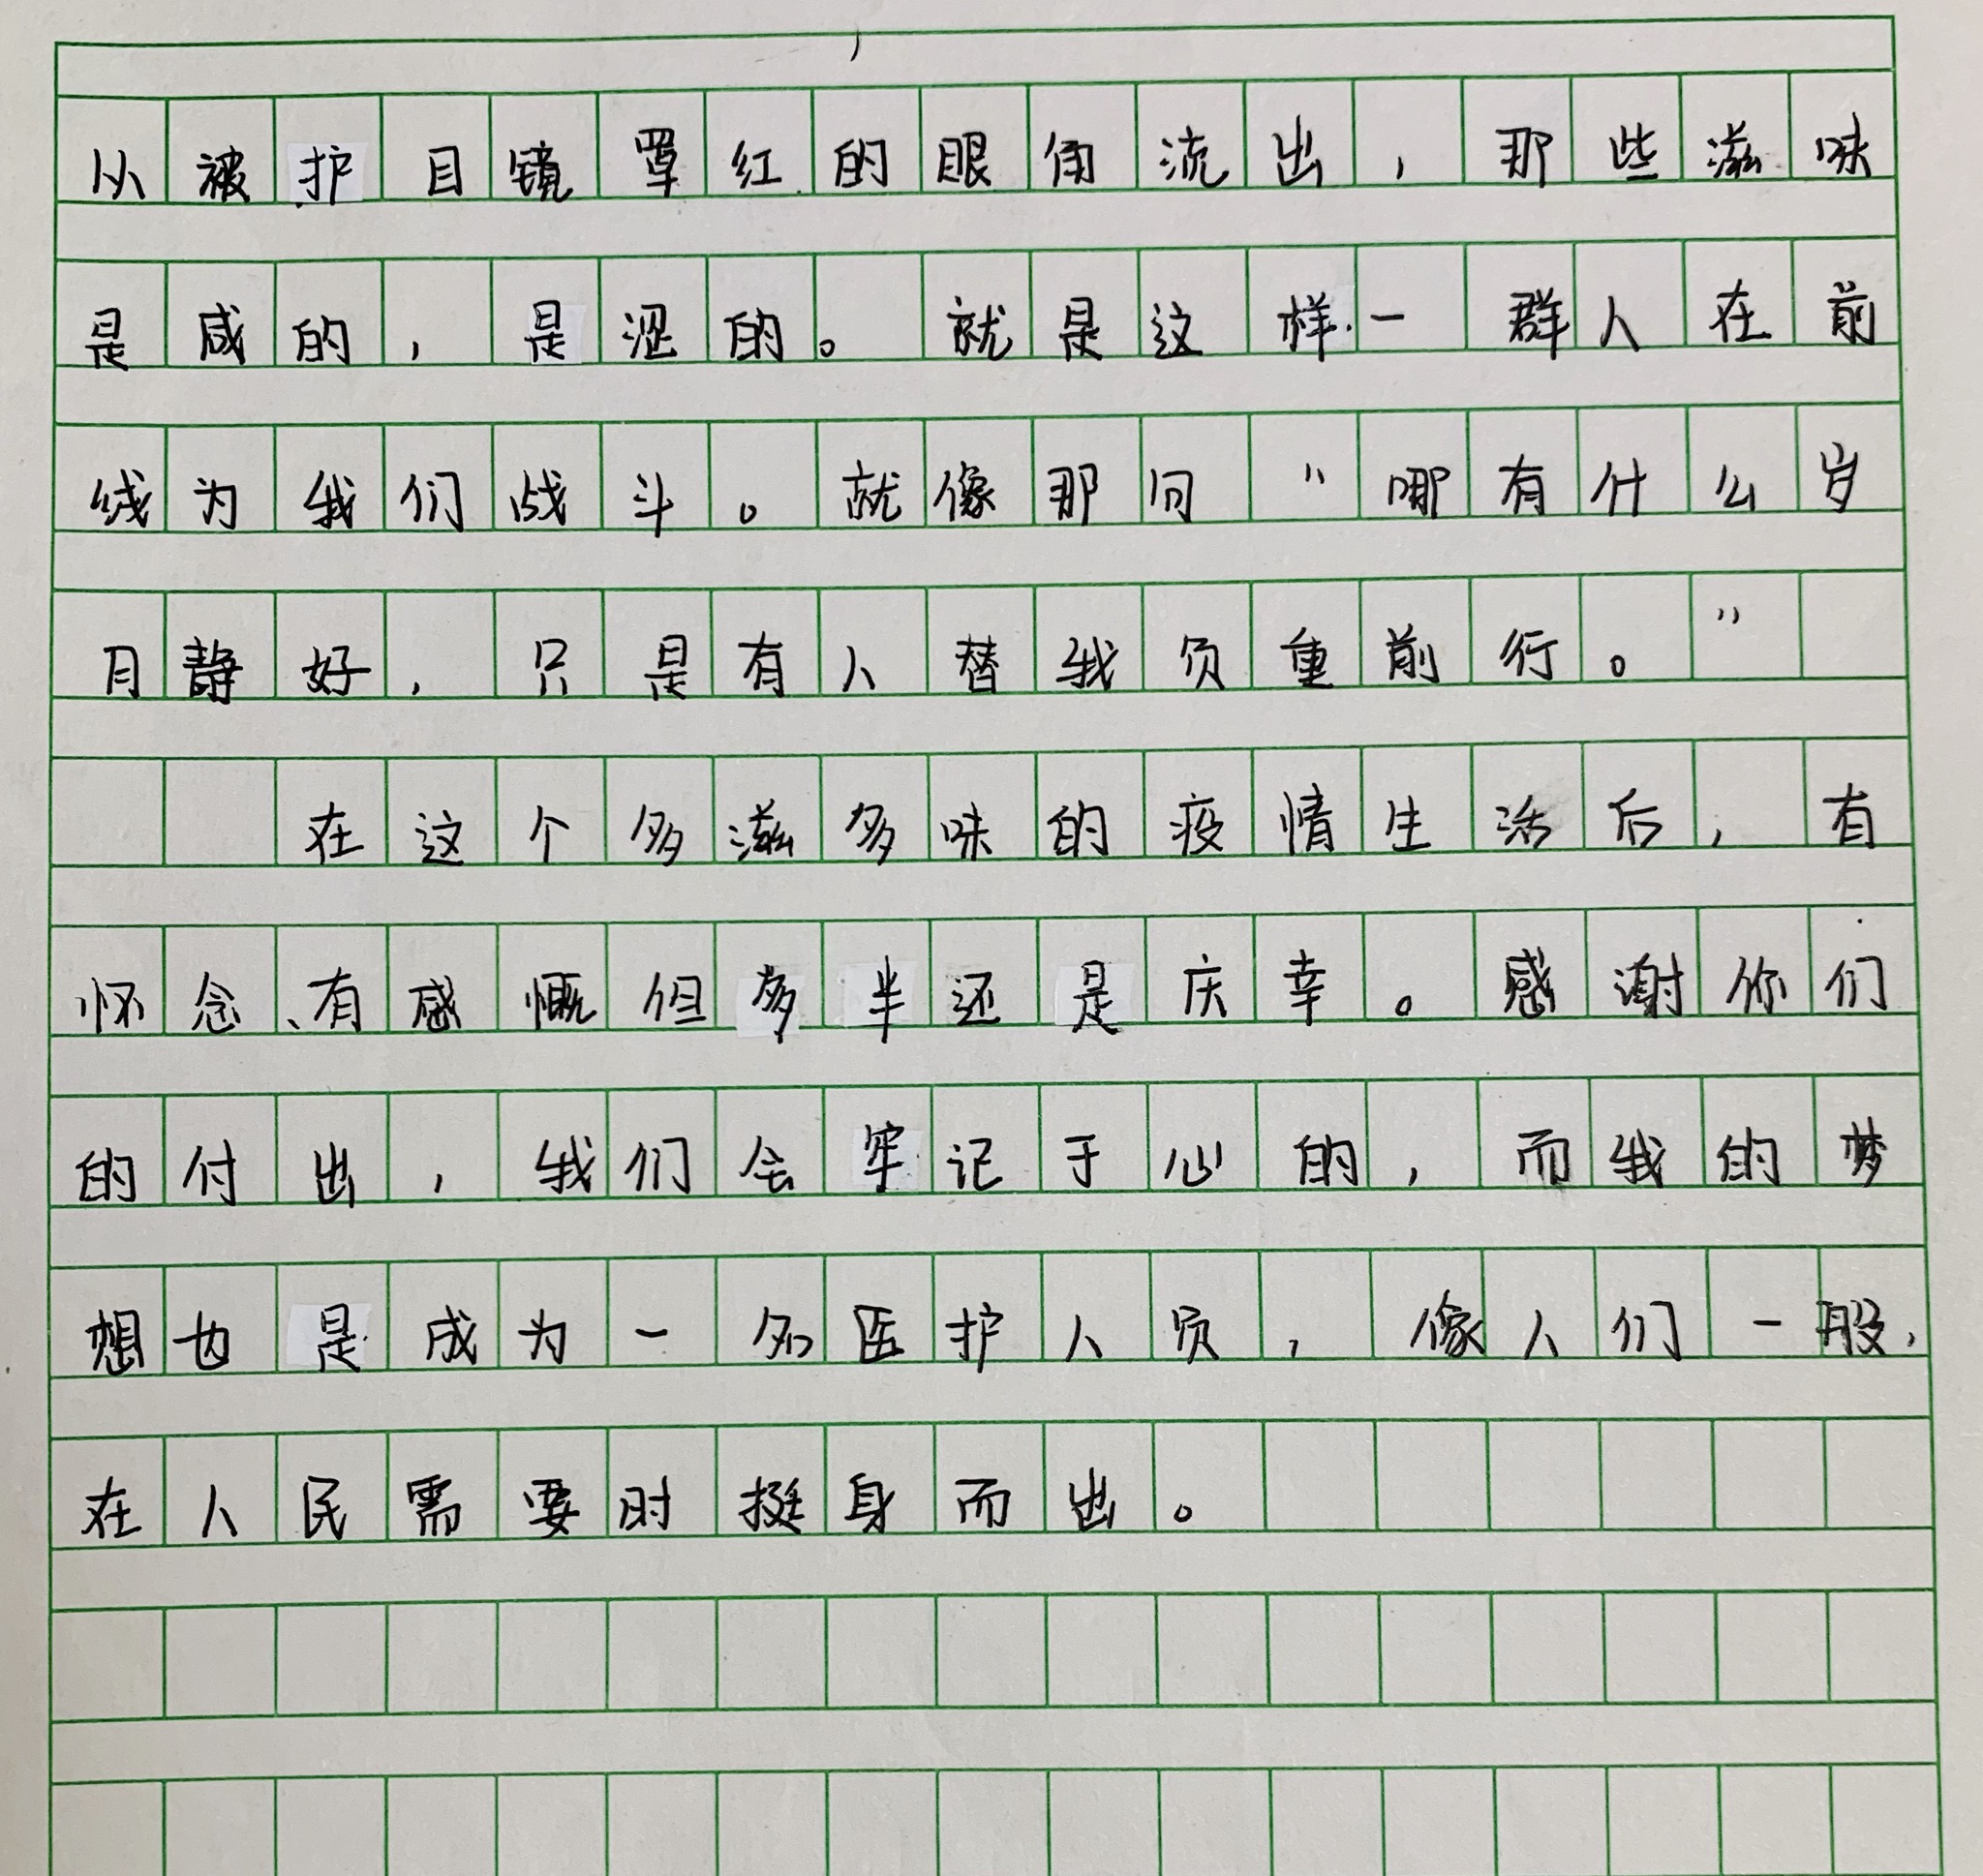 从被护目镜罩红的眼角流出，那些滋味
是咸的，是涩的。就是这样一群人在前
线为我们战斗。就像那句“哪有什么岁
月静好，只是有人替我负重前行。”
在这个多滋多味的疫情生活后，有
怀念、有感慨但多半还是庆幸。感谢你们
的付出，我们会牢记于心的，而我的梦
想也是成为一名医护人员，像人们一般，
在人民需要时挺身而出。